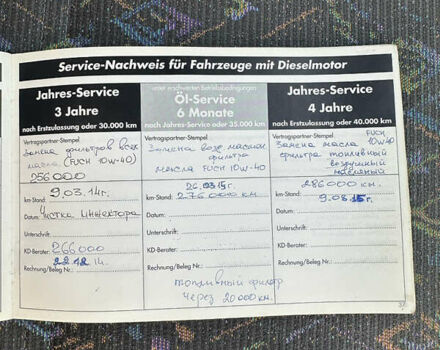 Service-Nachweis für Fahrzeuge mit Dieselmotor
Jahres-Service
3 Jahre
nach Erstzulassung oder 30.000 km
Vertragspartner-Stempel
Замена фильтров всех
масла (FUCH 10W-40)
256000
9.03.14г.
km-Stand:
Datum: Чистка инжектора
Unterschrift:
KD-Berater: 266000
22.12.14.
Rechnung/Beleg Nr.:
unter erschwerten Betriebsbedingungen
Öl-Service
6 Monate
nach Jahres-Service oder 35.000 km
Vertragspartner-Stempel
Замена возд маслян
фильтра
масла FUCH 10W-40
26.03.15г.
km-Stand: 276000 км.
Datum:
Unterschrift:
KD-Berater:
Rechnung/Beleg Nr.:
топливный фильтр
через 20000 км.
Jahres-Service
4 Jahre
nach Erstzulassung oder 40.000 km
Vertragspartner-Stempel FUCH
Замена масла 10W-40
фильтра топливный
воздушный
масляный
286000 км.
km-Stand: 9.08.15г.
Datum:
Unterschrift:
KD-Berater:
Rechnung/Beleg Nr.:
37